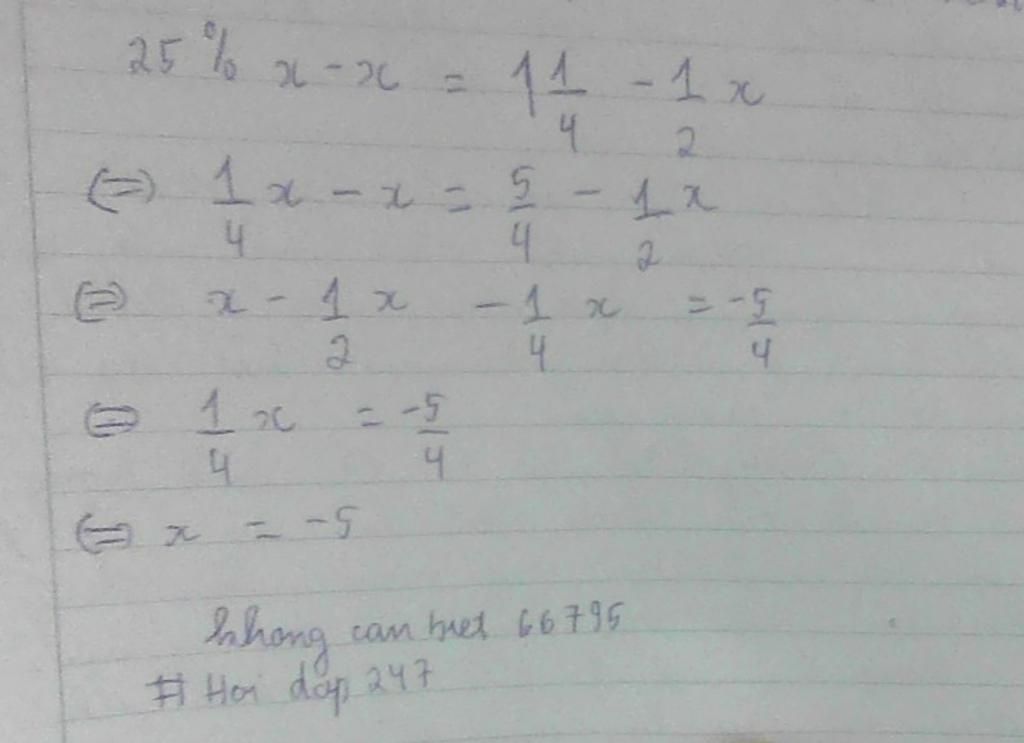 25% x - x = 1 1/4 - 1/2 x
(=) 1/4 x - x = 5/4 - 1/2 x
(=) x - 1/2 x - 1/4 x = -5/4
(=) 1/4 x = -5/4
(=) x = -5
khong can biet 66795
# Hoi dap 247